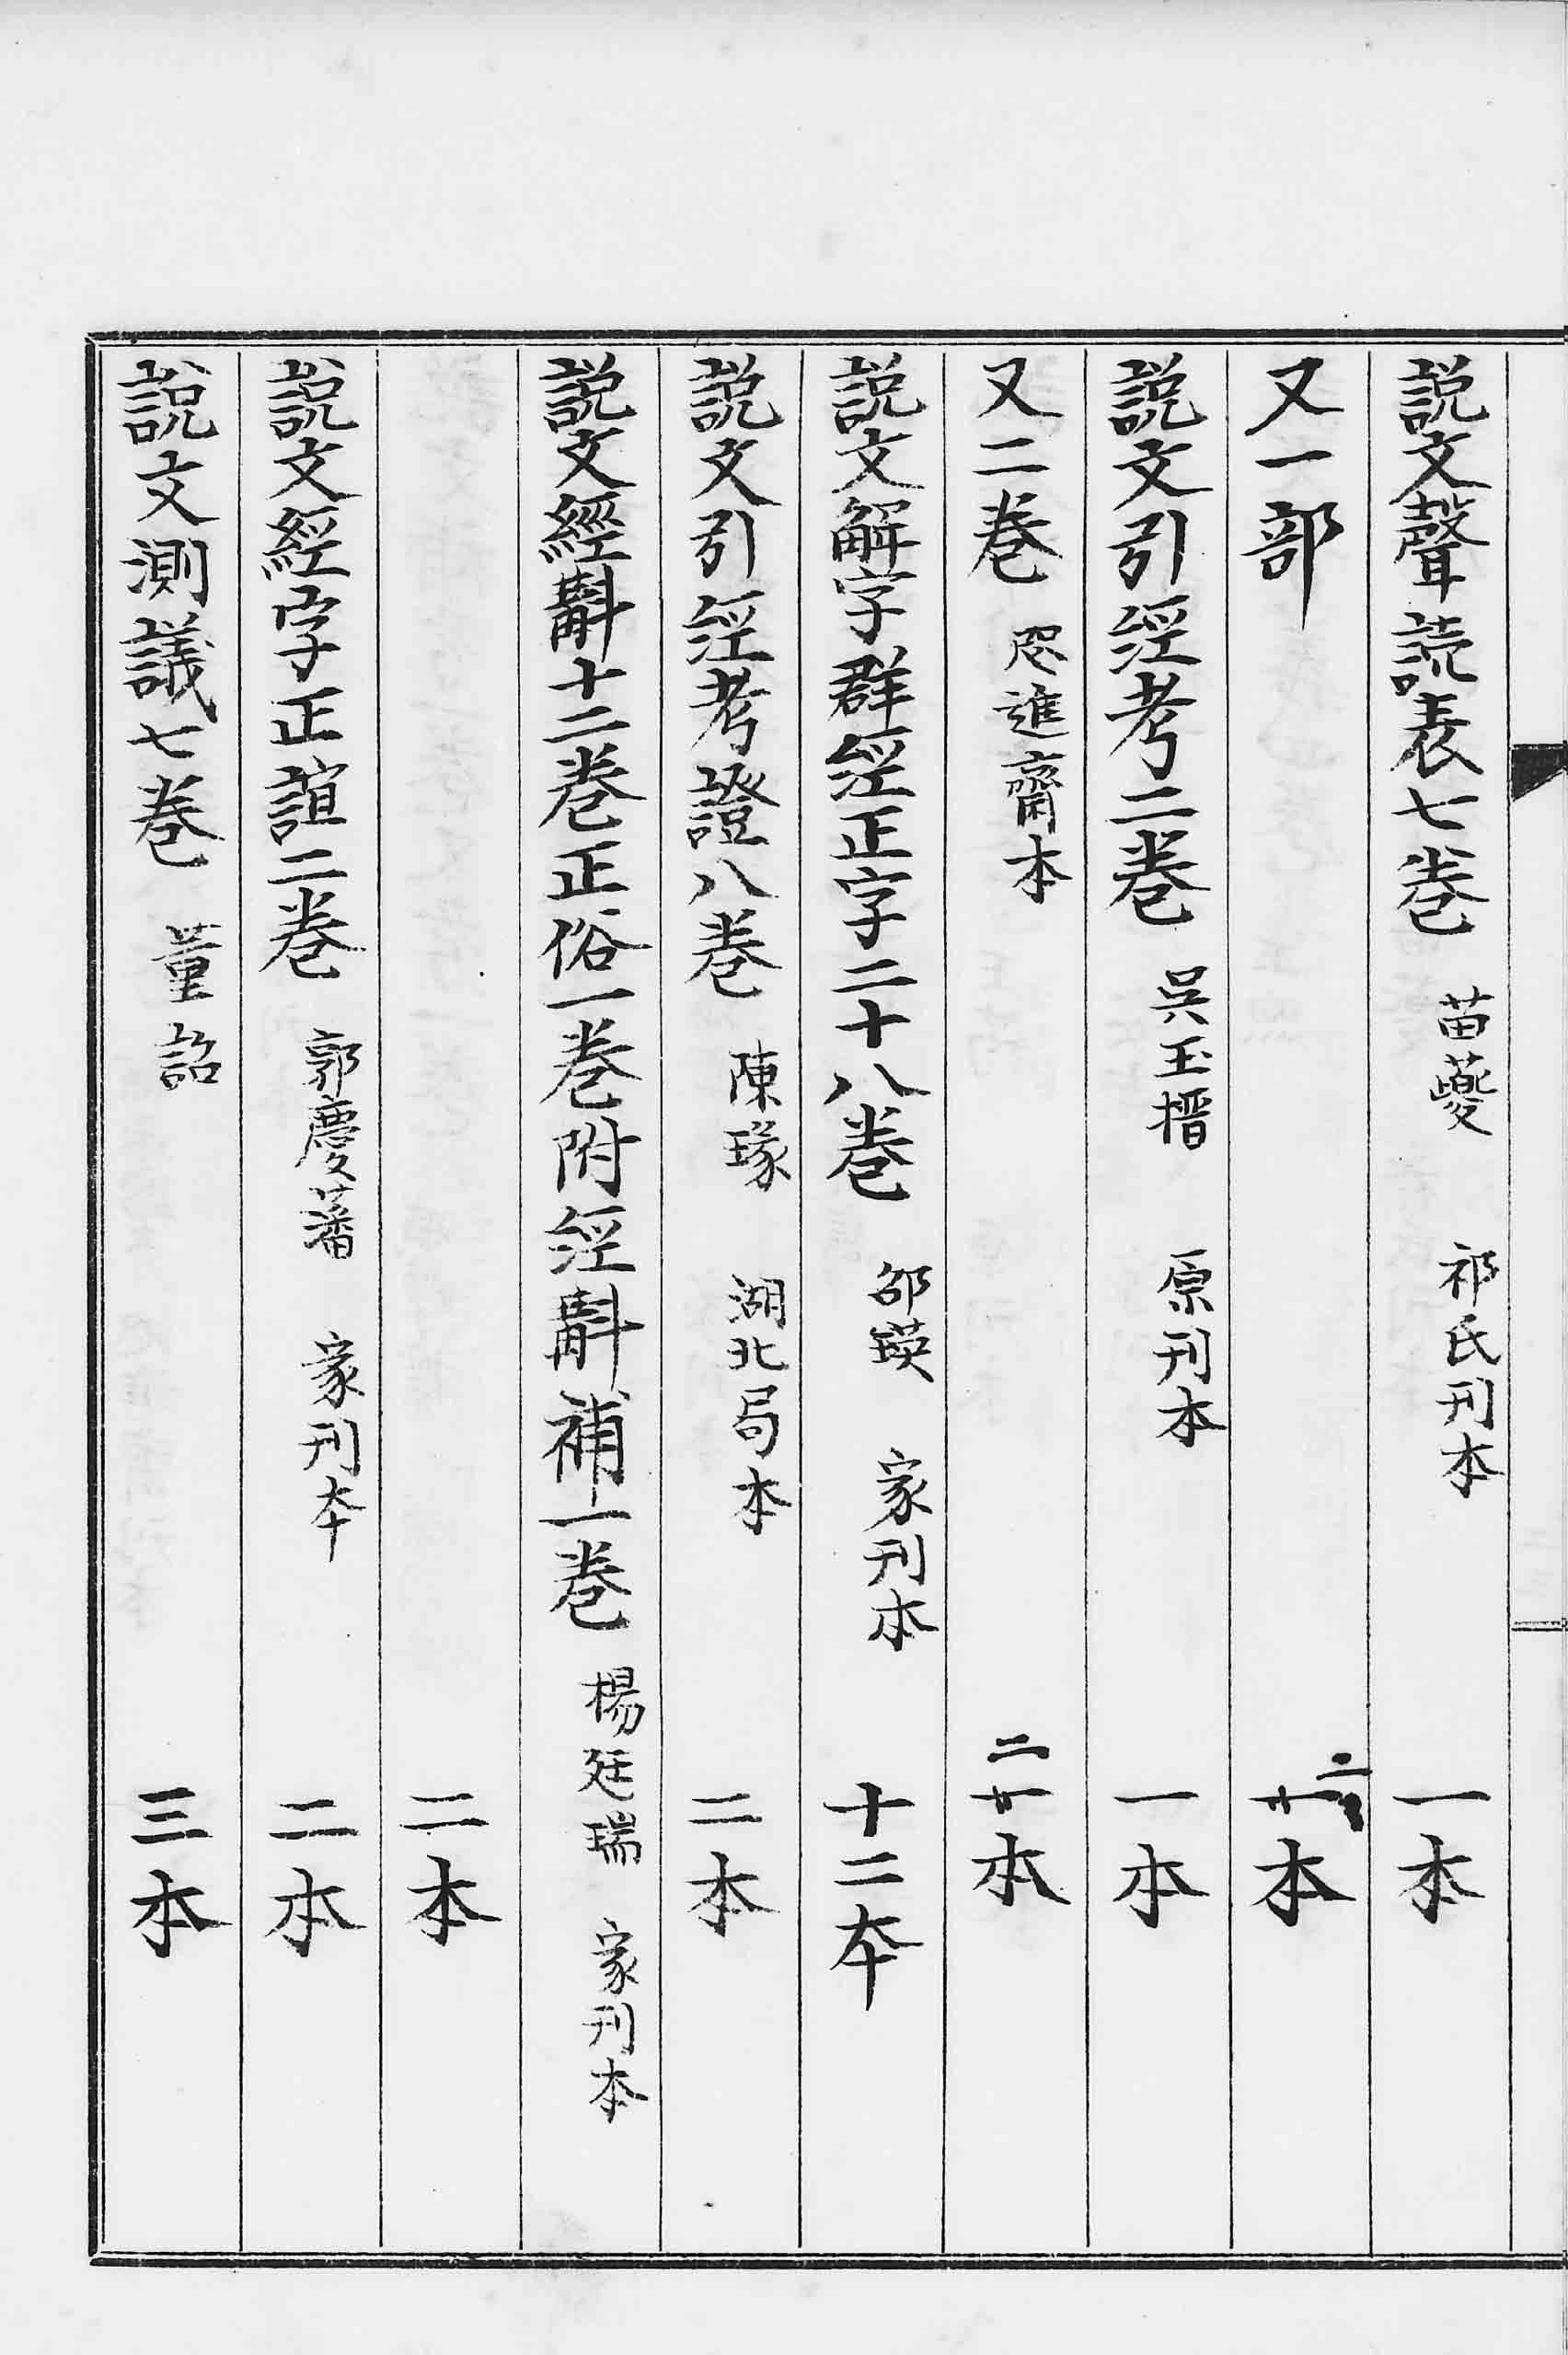 説文聲読表七卷 苗夔 祁氏刊本 一本
又一部 二本
説文引經考二卷 吳玉搢 原刊本 一本
又二卷 咫進齋本 二本
説文解字群經正字二十八卷 邵瑛 家刊本 十二本
説文引經考證八卷 陳瑑 湖北局本 二本
説文經斠十二卷正俗一卷附經斠補一卷 楊廷瑞 家刊本
二本
説文經字正誼二卷 郭慶蕃 家刊本 二本
説文測議七卷 董詔 三本